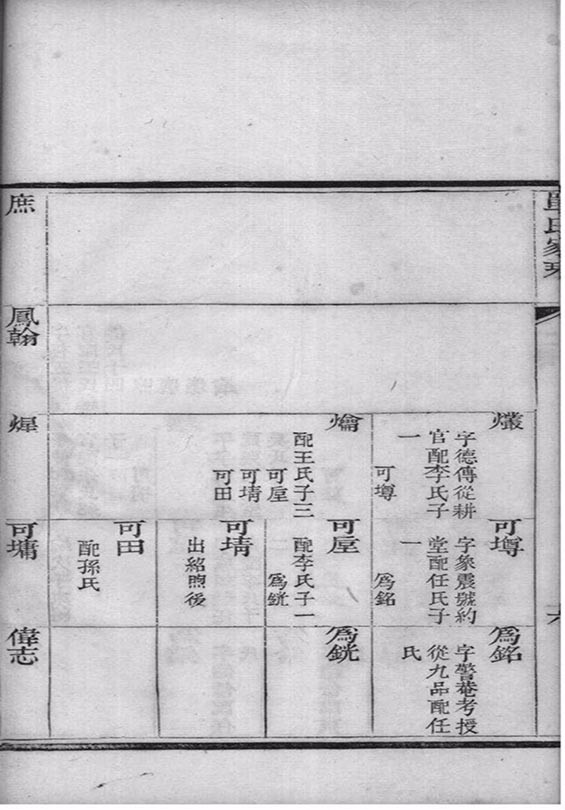 氏家
庶
鳳翰
字德傳從耕
官配李氏子
一
可墫
爚
配王氏子三
可屋
可埥
可田
可墫
字象震號約
堂配任氏子
一
爲銘
可屋
配李氏子一
爲銧
可埥
出紹煦後
可田
配孫氏
可墉
爲銘
字警菴考授
從九品配任
氏
爲銧
偉志